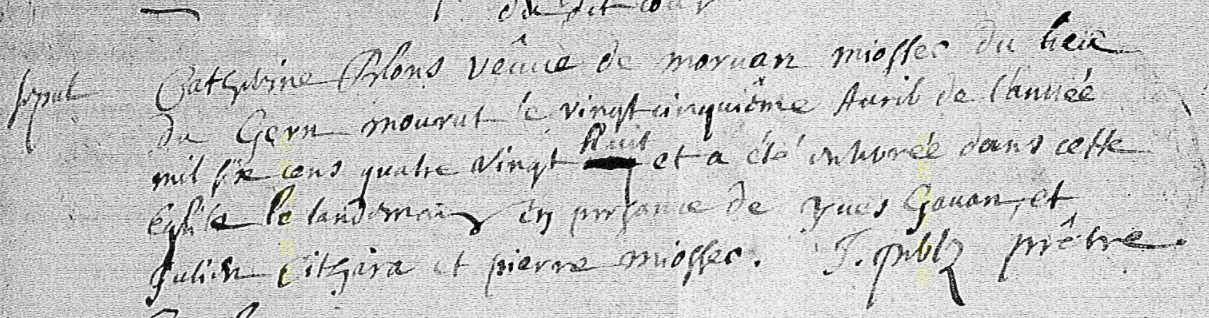 du dit jour
sepul Catherine Blons veuve de morvan miossec du lieu
du Gern mourut le vingt cinquiême Avril de l'année
mil six cens quatre vingt huit et a été enterrée dans cette
Eglise le landemain en presance de yves Gauan, et
Julien Cithara et pierre miossec. J. prêtre.